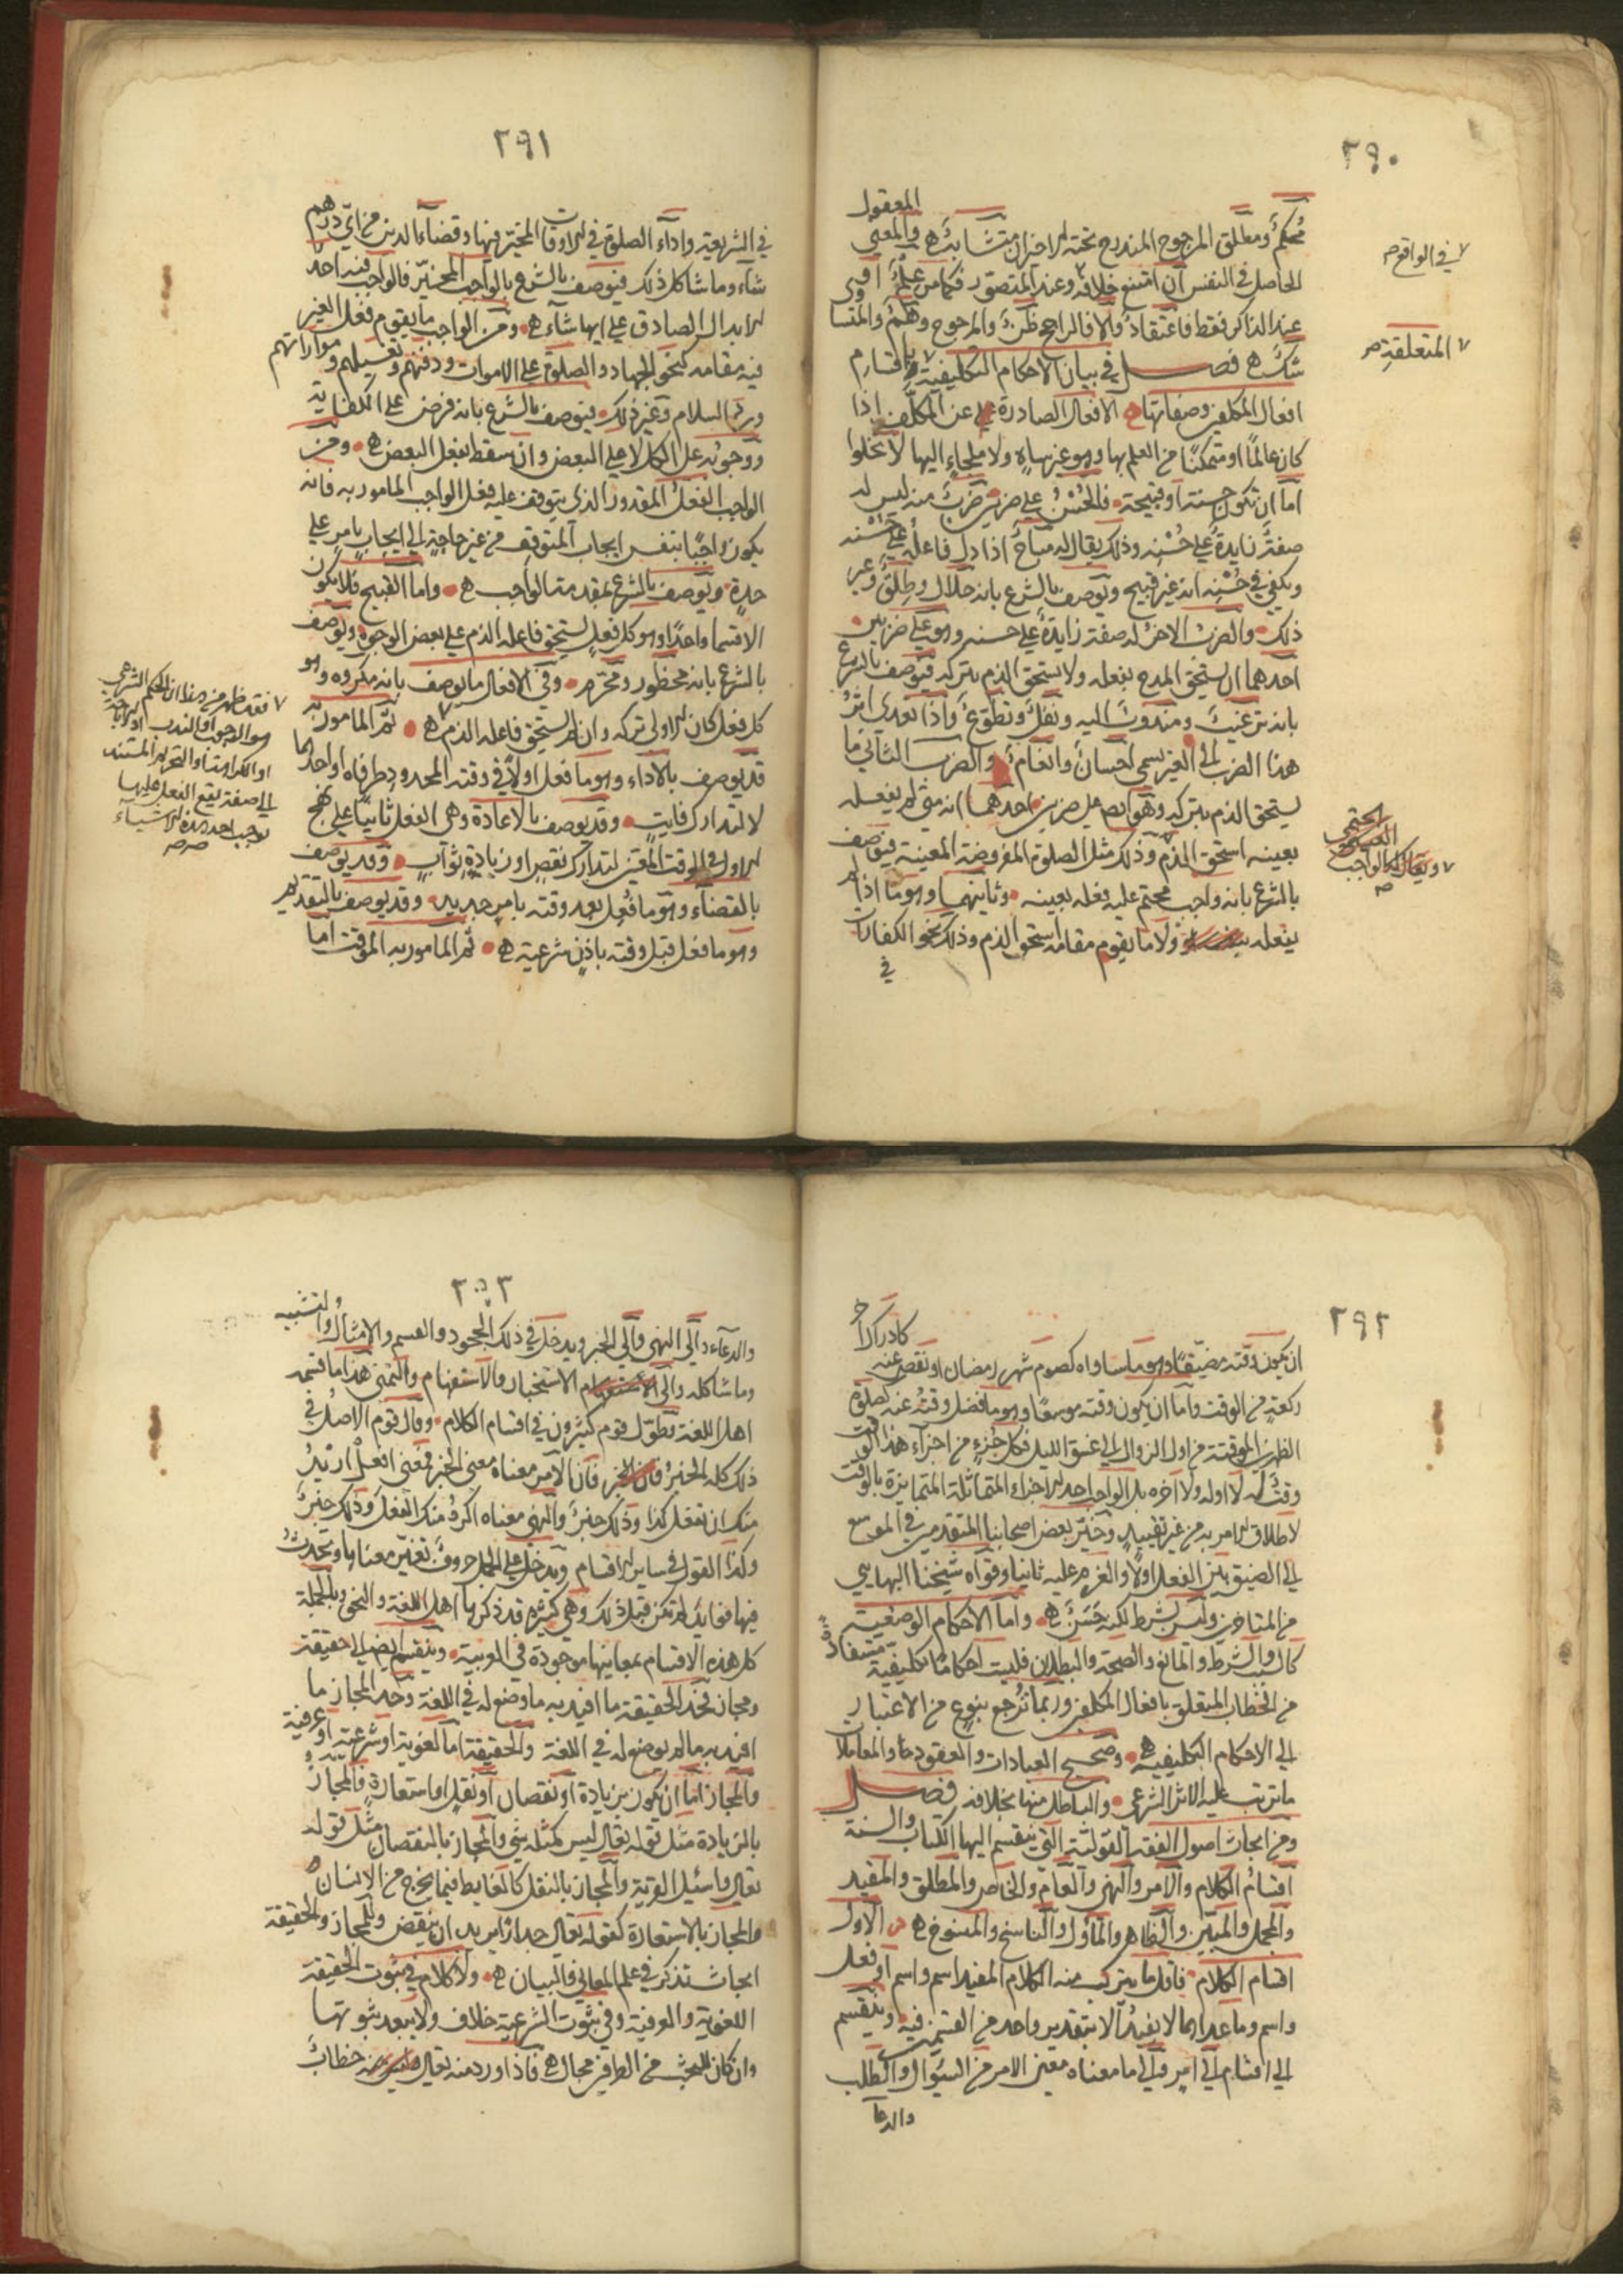 ٢٩٠
محكم ومطلق المرجوح المندرج تحته الاخيران متشابه والمعنى المعقول
الحاصل في النفس ان امتنع خلافه وعند المتصور فكما من علم او في
عند الذاكر فقط فاعتقاد والا فالراجح ظن والمرجوح وهم والمتسا وى
شك فصل في بيان الاحكام التكليفية باقسام
افعال المكلفين وصفاتها الافعال الصادرة عن المكلف اذا
كان عالما او متمكنا من العلم بها وهو غير ساه ولا ملجاء اليها لا تخلوا
اما ان تكون حسنة او قبيحة فالحسن على ضربين ضرب منه ليس له
صفة زايدة على حسنه وذلك يقال له مباح اذا دل فاعله على حسنه
ويكفي في حسنه انه غير قبيح ويوصف بالشرع بانه حلال وطلق وغير
ذلك والضرب الاخر له صفة زايدة على حسنه وهو على ضربين
احدهما ان يستحق المدح بفعله ولا يستحق الذم بتركه فيوصف بالشرع
بانه مرغب ومندوب اليه ونفل وتطوع واذا تعدى اثر
هذا الضرب الى الغير يسمى احسان وانعام والضرب الثاني ما
يستحق الذم بتركه وهو ايضا على ضربين احدهما انه متى لم يفعله
بعينه استحق الذم وذلك مثل الصلوة المفروضة المعينة فيوصف
بالشرع بانه واجب محتم عليه فعله بعينه وثانيهما وهو ما اذا لم
يفعله ولا ما يقوم مقامه استحق الذم وذلك نحو الكفارات
في
في الواقع
المتعلقة
ويقال له الواجب
٢٩١
في الشريعة واداء الصلوة في الاوقات المخير فيها وقضاء الدين من اي درهم
شاء وما شاكل ذلك فيوصف بالشرع بالواجب المخير فالواجب فيه احد
الابدال الصادق على ايها شاء ومن الواجب ما يقوم فعل الغير
فيه مقامه كنحو الجهاد والصلوة على الاموات ودفنهم وتغسيلهم ومواراتهم
ورد السلام وغير ذلك فيوصف بالشرع بانه فرض على الكفاية
ووجوبه على الكل لا على البعض وان سقط بفعل البعض ومن
الواجب الفعل المقدور الذي يتوقف عليه فعل الواجب المامور به فانه
يكون واجبا بنفس ايجاب المتوقف من غير حاجة الى ايجاب بامر على
حدة ويوصف بالشرع بمقدمة الواجب واما القبيح فلا يكون
الا قسما واحدا وهو كل فعل يستحق فاعله الذم على بعض الوجوه ويوصف
بالشرع بانه محظور ومحرم وفي الافعال ما يوصف بانه مكروه وهو
كل فعل كان الاولى تركه وان لم يستحق فاعله الذم ثم المامور به
قد يوصف بالاداء وهو ما فعل اولا في وقته المحدود طرفاه او احدهما
لا لتدارك فايت وقد يوصف بالاعادة وهي الفعل ثانيا على نهج
الاول في الوقت المعين لتدارك نقص او زيادة ثواب وقد يوصف
بالقضاء وهو ما فعل بعد وقته بامر جديد وقد يوصف بالتقديم
وهو ما فعل قبل وقته باذن شرعية ثم المامور به الموقت اما
فقد ظهر من هذا ان الحكم الشرعي
هو الوجوب والندب او الاباحة
او الكراهة او التحريم المستند
الى صفة يقع الفعل عليها
٢٩٢
ان يكون وقته مضيقا وهو ما ساواه كصوم شهر رمضان او نقص عنه كادراك
ركعة من الوقت واما ان يكون وقته موسعا وهو ما فضل وقته عنه كصلوة
الظهرين الموقتة من اول الزوال الى غسق الليل فكل جزء من اجزاء هذا الوقت
وقت له لا اوله ولا اخره بل الواجب احد الاجزاء المتماثلة المتمايزة بالوقت
لاطلاق الامر به من غير تقييد وخير بعض اصحابنا المتقدمين في الموسع
الى الضيق بين الفعل اولا والعزم عليه ثانيا وقواه شيخنا البهايي
من المتاخرين وليس بشرط لكنه حسن واما الاحكام الوضعية
كالسبب والشرط والمانع والصحة والبطلان فليست احكاما تكليفية مستفادة
من الخطاب المتعلق بافعال المكلفين وربما ترجع بنوع من الاعتبار
الى الاحكام التكليفية وصحيح العبادات والعقود والمعاملات
ما ترتب عليه الاثر الشرعي والباطل منها بخلافه فصل
ومن ابحاث اصول الفقه القولية التي ينقسم اليها الكتاب والسنة
اقسام الكلام والامر والنهي والعام والخاص والمطلق والمقيد
والمجمل والمبين والظاهر والماول والناسخ والمنسوخ الاول
اقسام الكلام فاقل ما يتركب منه الكلام المفيد اسم واسم او فعل
واسم وما عداهما لا يفيد الا بتقدير واحد من القسمين فيه وينقسم
الى اقسام الى امر والى ما معناه معنى الامر من السؤال والطلب
والدعا
٢٩٣
والدعاء والى النهي والى الخبر ويدخل في ذلك الجحود والقسم والامثال والتشبيه
وما شاكله والى الاستخبار والاستفهام والتمني هذا ما قسمه
اهل اللغة وطول قوم كثيرون في اقسام الكلام وقال قوم الاصل في
ذلك كله الخبر فان الامر معناه معنى الخبر فمعنى افعل اريد
منك ان تفعل كذا وذلك خبر والنهي معناه اكره منك الفعل وذلك خبر
وكذا القول في ساير الاقسام ويدخل على الجمل حروف تغير معناها وتحدث
فيها فوايد لم تكن قبل ذلك وهي كثيرة قد ذكرها اهل اللغة والنحو وبالجملة
كل هذه الاقسام بمعانيها موجودة في العربية وينقسم ايضا الى حقيقة
ومجاز فحد الحقيقة ما افيد به ما وضع له في اللغة وحد المجاز ما
افيد به ما لم يوضع له في اللغة والحقيقة اما لغوية او شرعية او عرفية
والمجاز اما ان يكون بزيادة او نقصان او نقل او استعارة فالمجاز
بالزيادة مثل قوله تعالى ليس كمثله شيء والمجاز بالنقصان مثل قوله
تعالى واسئل القرية والمجاز بالنقل كالغايط فيما يخرج من الانسان
والمجاز بالاستعارة كقوله تعالى جدارا يريد ان ينقض وللمجاز والحقيقة
ابحاث تذكر في علم المعاني والبيان ولا كلام في ثبوت الحقيقة
اللغوية والعرفية وفي ثبوت الشرعية خلاف ولا يبعد ثبوتها
وان كان للبحث من الطرفين مجال فاذا ورد منه تعالى خطاب